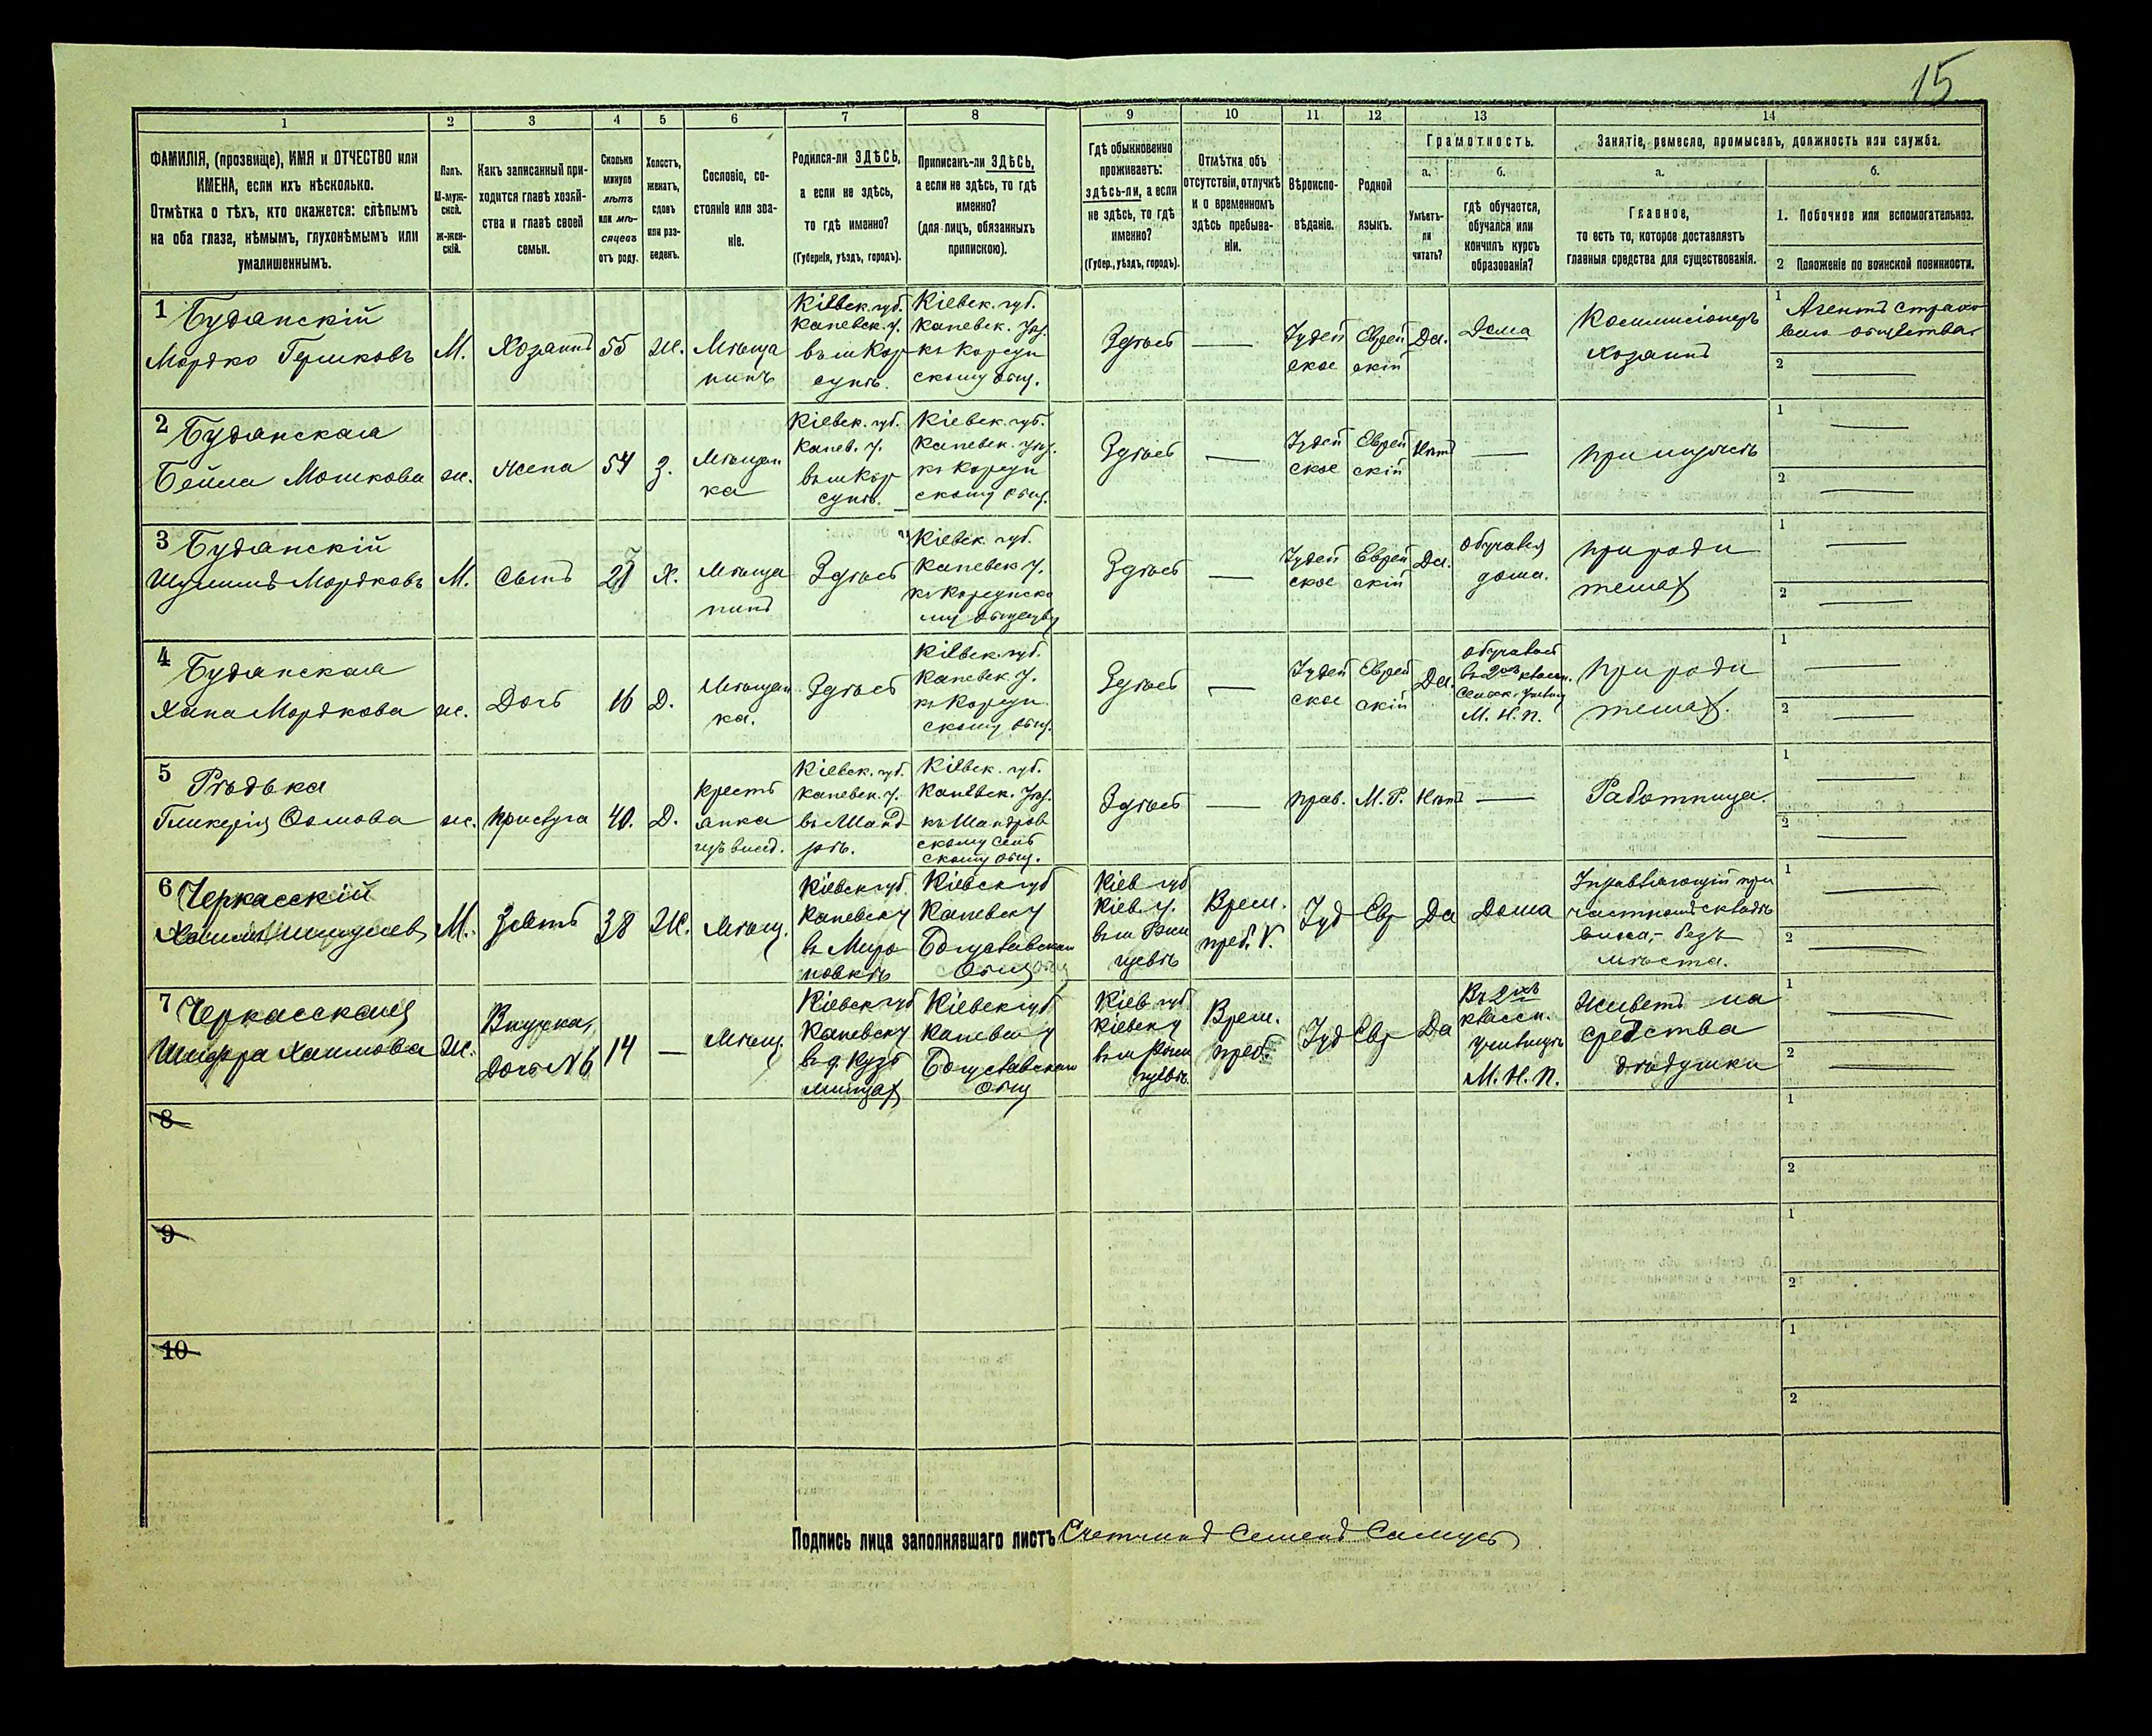 15
1
2
3
4
5
6
7
8
9
10
11
12
13
14
ФАМИЛІЯ, (прозвище), ИМЯ и ОТЧЕСТВО или
ИМЕНА, если ихъ нѣсколько.
Отмѣтка о тѣхъ, кто окажется: слѣпымъ
на оба глаза, нѣмымъ, глухонѣмымъ или
умалишеннымъ.
Полъ.
М-муж-
ской.
Ж-жен-
скій.
Какъ записанный при-
ходится главѣ хозяй-
ства и главѣ своей
семьи.
Сколько
минуло
лѣтъ
или мѣ-
сяцевъ
отъ роду.
Холостъ,
женатъ,
вдовъ
или раз-
веденъ.
Сословіе, со-
стояніе или зва-
ніе.
Родился-ли ЗДѢСЬ,
а если не здѣсь,
то гдѣ именно?
(Губернія, уѣздъ, городъ).
Приписанъ-ли ЗДѢСЬ,
а если не здѣсь, то гдѣ
именно?
(для лицъ, обязанныхъ
припискою).
Гдѣ обыкновенно
проживаетъ:
здѣсь-ли, а если
не здѣсь, то гдѣ
именно?
(Губер., уѣздъ, городъ).
Отмѣтка объ
отсутствіи, отлучкѣ
и о временномъ
здѣсь пребыва-
ніи.
Вѣроиспо-
вѣданіе.
Родной
языкъ.
Грамотность.
а.
Умѣетъ-
ли
читать?
б.
гдѣ обучается,
обучался или
кончилъ курсъ
образованія?
Занятіе, ремесло, промыселъ, должность или служба.
а.
Главное,
то есть то, которое доставляетъ
главныя средства для существованія.
б.
1. Побочное или вспомогательное.
2 Положеніе по воинской повинности.
1 Буданскій
Мордко Гершковъ
М.
Хозяинъ
55
Ж.
Мѣща
нинъ
Кіевск. губ.
Каневск. у.
въ м Кор
сунѣ.
Кіевск. губ.
Каневск. у.
къ Корсун
скому общ.
Здѣсь
Іудей
ское
Еврей
скій
Да.
Дома
Коммисіонеръ
хозяинъ
1 Агентъ страхо
ваго общества
2
2 Буданская
Бейла Мошкова
ж.
Жена
54
З.
Мѣщан
ка
Кіевск. губ.
Канев. у.
въ м Кор
сунѣ.
Кіевск. губ.
Каневск. у.
къ Корсун
скому общ.
Здѣсь
Іудей
ское
Еврей
скій
Нѣтъ
при мужѣ
1
2
3 Буданскій
Мордковъ
М.
Сынъ
21
Х.
Мѣща
нинъ
Здѣсь
Кіевск. губ.
Каневск у.
къ Корсунско
му обществу
Здѣсь
Іудей
ское
Еврей
скій
Да.
обучался
дома.
при роди
телях
1
2
4 Буданская
Хана Мордкова
ж.
Дочь
16
Д.
Мѣщан
ка.
Здѣсь
Кіевск. губ.
Каневск у.
къ Корсун
скому общ.
Здѣсь
Іудей
ское
Еврей
скій
Да.
обучалась
въ 2хъ классн.
М. Н. П.
при роди
телях.
1
2
5 Рѣдька
Гликерія
ж.
прислуга
40.
Д.
Крестъ
янка
Кіевск. губ.
Каневск. у.
въ Шанд
рѣ.
Кіевск. губ.
Каневск. у.
къ Шандров
скому сель
скому общ.
Здѣсь
прав.
М. Р.
Нѣтъ
Работница.
1
2
6 Черкасскій
М.
Зять
38
Ж.
Мѣщ.
Кіевск губ
Каневск у
в Миро
новкѣ
Кіевск губ
Каневск у
Богуславском
общ
Кіев губ
Кіев. у.
въ м Ржи
щевѣ
Врем.
преб.
Іуд
Евр
Да
Дома
Управляющій при
частномъ складѣ
безъ
мѣста.
1
2
7 Черкасская
Шифра Хаимова
Ж.
Внучка,
Дочь N6
14
Мѣщ.
Кіевск губ
Каневск у
въ д. Кузь
минцах
Кіевск губ
Каневск у
Богуславском
общ
Кіев губ
Кіевск у
въ м Ржи
щевѣ.
Врем.
преб.
Іуд
Евр
Да
Въ 2хъ
классн.
училищѣ
М. Н. П.
Живетъ на
средства
дѣдушки
1
2
8
1
2
9
1
2
10
1
2
Подпись лица заполнявшаго листъ Счетчикъ Семенъ